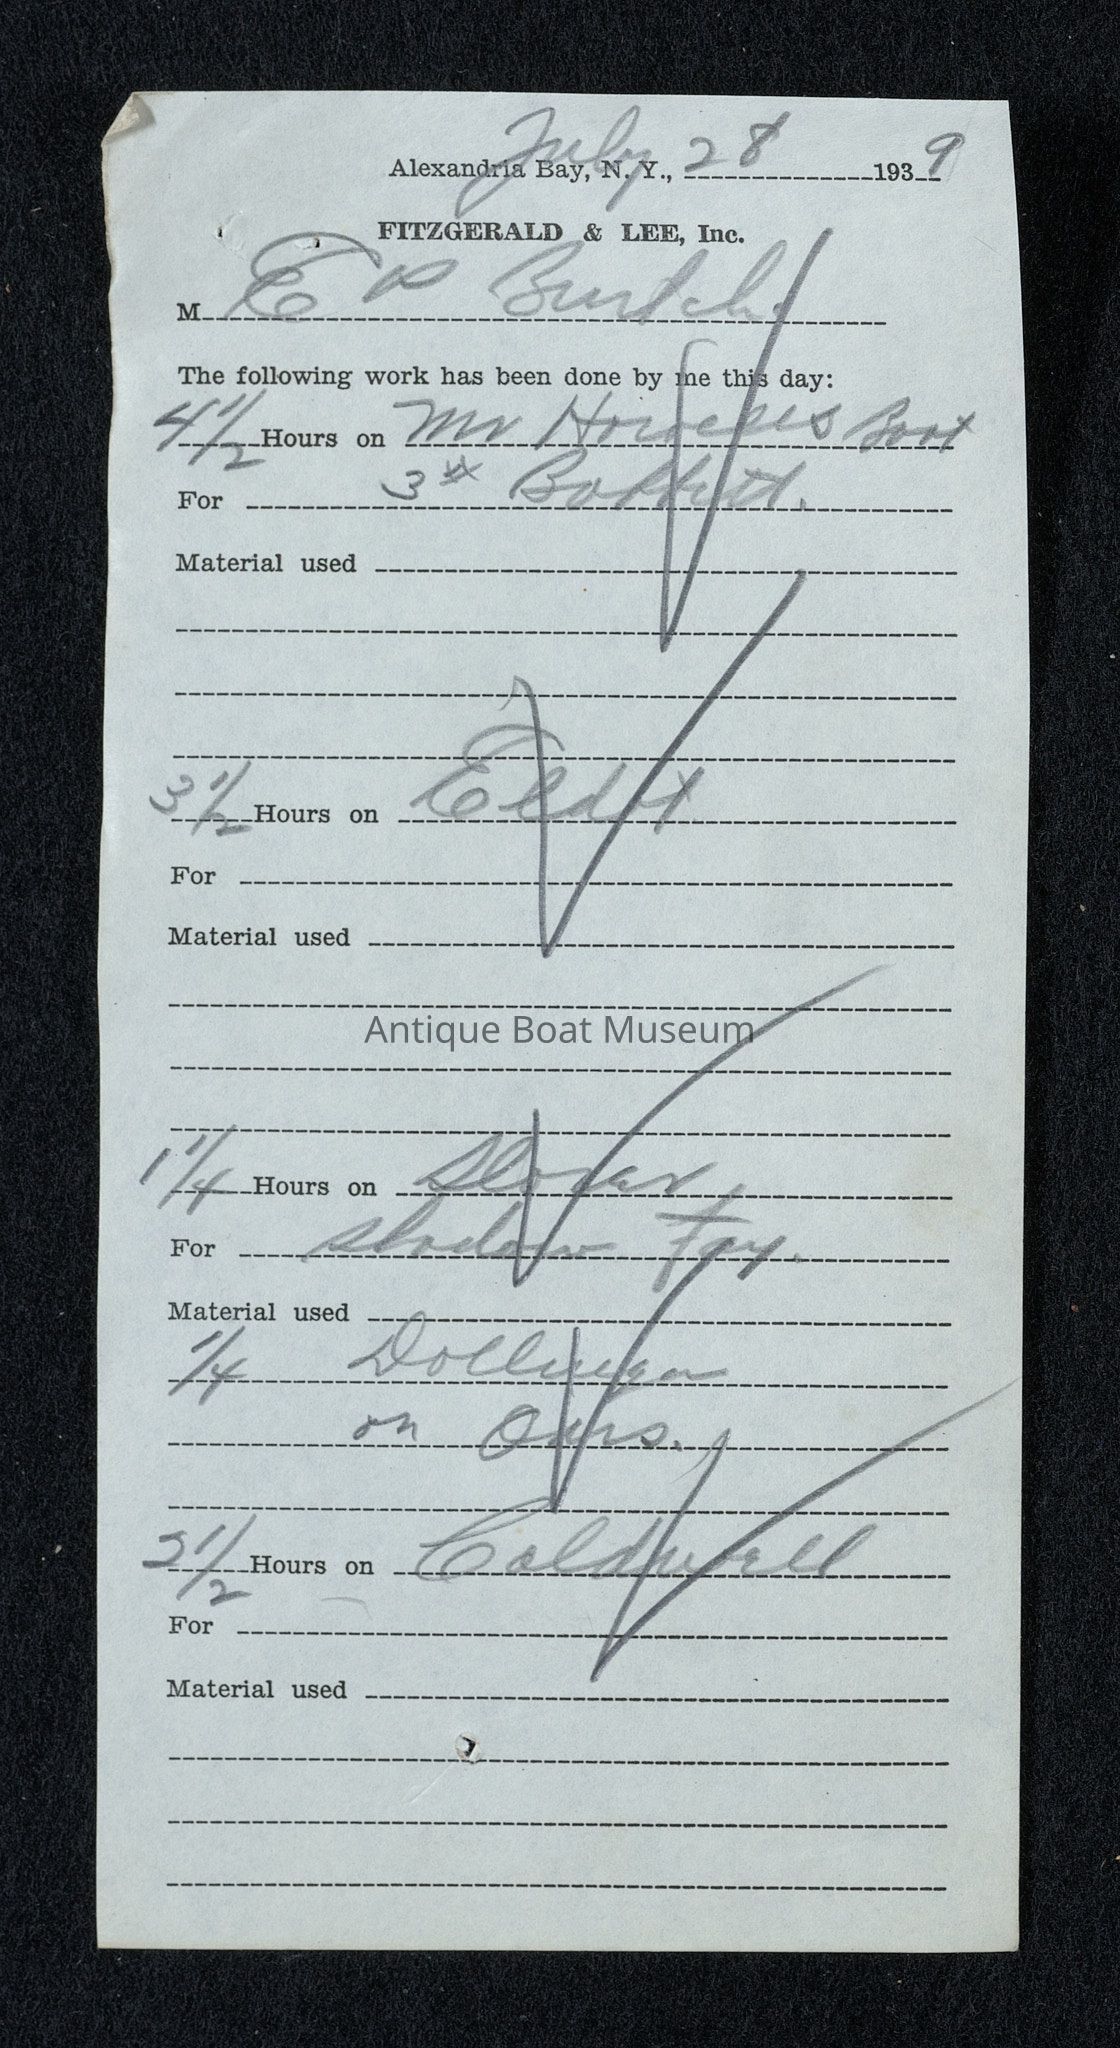 July 28 9
Alexandria Bay, N. Y., 193
FITZGERALD & LEE, Inc.
M E P Burtch.
The following work has been done by me this day:
4 1/2 Hours on Mr Boat
For 3 #
Material used
3 1/2 Hours on
For
Material used
Antique Boat Museum
1 1/4 Hours on Slover
For Shadow Fay.
Material used
1/4
on Ours.
2 1/2 Hours on Caldwell
For
Material used